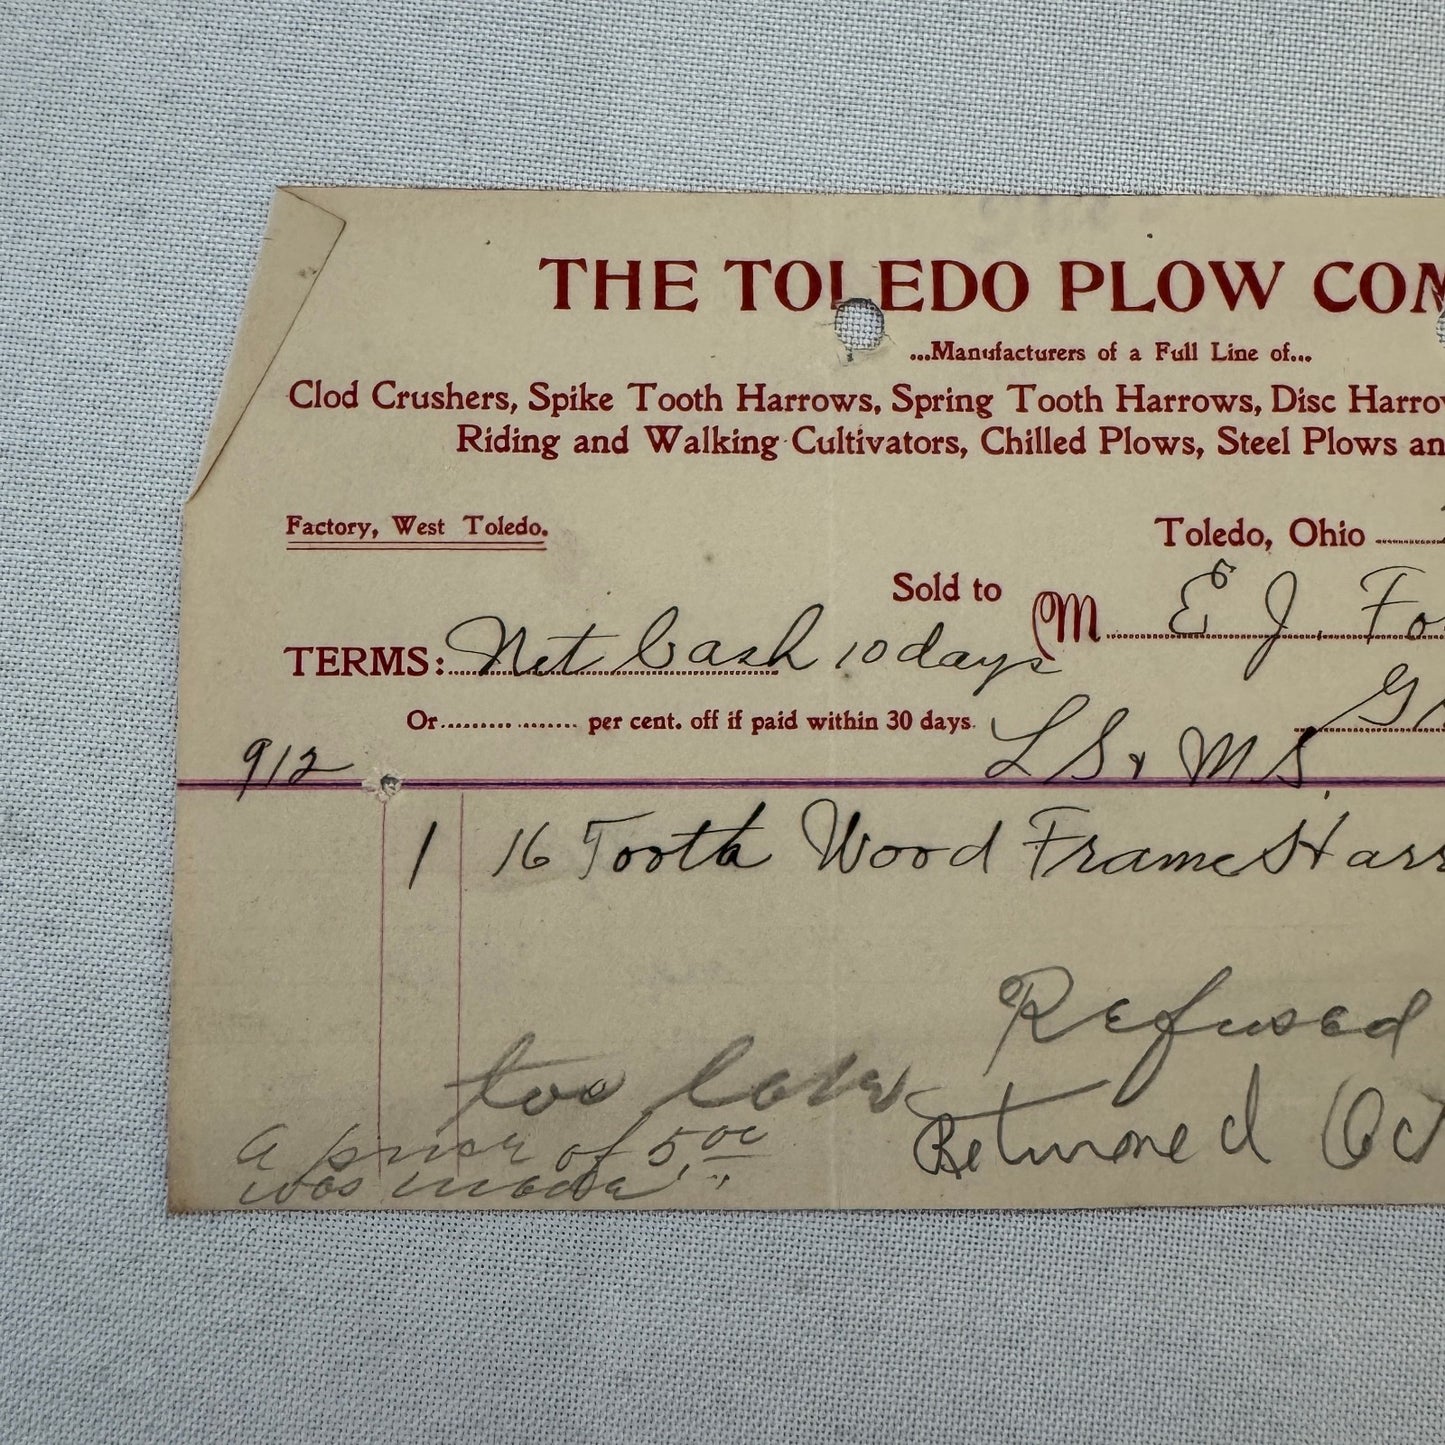 THE TOLEDO PLOW COM
...Manufacturers of a Full Line of...
Clod Crushers, Spike Tooth Harrows, Spring Tooth Harrows, Disc Harrow
Riding and Walking Cultivators, Chilled Plows, Steel Plows an
Factory, West Toledo.
Toledo, Ohio
Sold to M E J. Fo
TERMS: Net Cash 10 days
Or per cent. off if paid within 30 days.
L S & M S.
912
1 16 Tooth Wood Frame Harr
Refused
too
Returned Oct
a price of 5.00
was made